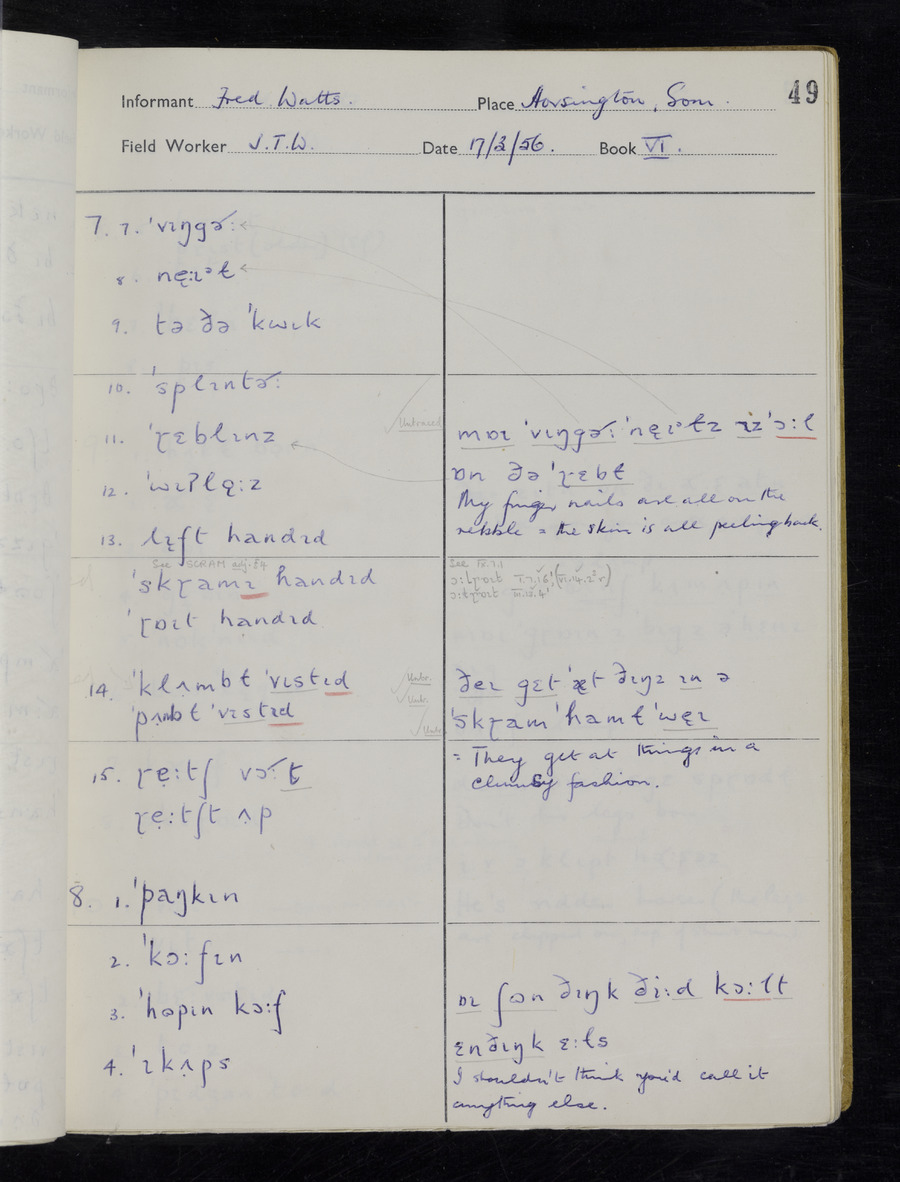 Informant Fred Watts. Place Horsington, Som. 49
Field Worker J.T.W. Date 17/3/56. Book VI.
7. 7. ˈvɪŋgɚː
8. ne̜ːɪᵊɫ
9. tə ðə ˈkwɪk
10. ˈsplɪntɚː
11. ˈɽɛblɪnz
12. ˈwɪʔlo̜ːz
13. lɛ̝ft handɪd
See SCRAM adj. £4
ˈskɽamɪ handɪd
ˈɽɒɪt handɪd
14. ˈklʌmbɫ ˈvɪstɪd
ˈpʌmbɫ ˈvɪstɪd
15. ɽe̞ːtʃ vɔːɫ
ɽe̞ːtʃt ʌp
8. 1. ˈpaŋkɪn
2. ˈkɔːfɪn
3. ˈhɒpɪn kɔːf
4. ˈɪkʌps
Untraced
mɒɪ ˈvɪŋgɚː ˈne̜ɪᵊɫz ɪz ˈɔːl
ɒn ðə ˈɽɛbɫ
My finger nails are all on the
rebble = the skin is all peeling back.
See IV.7.1
ðeɪ gɛt ˈæt ðɪŋz ɪn ə
ˈskɽam ˈhamɫ ˈwɛɪ
= They get at things in a
clumsy fashion.
ɒɪ ʃən ðɪŋk ðiːd kɔːlt
ɛnðɪŋk ɛːls
I shouldn't think you'd call it
anything else.